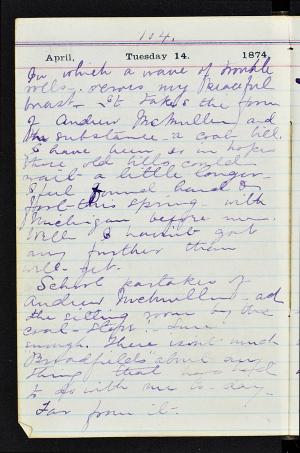 104.
April, Tuesday 14. 1874
In which a wave of trouble
rolls, across my peaceful
breast - It takes the form
of Andrew McMullen and
the substance a coal bill.
I have been so in hopes
those old bills could
wait a little longer -
I feel bound hand &
foot this spring - with
Michigan before me.
Well I havent got
any further than
will - yet.
School partakes of
Andrew McMullen - and
the sitting room by the
coal - stops. - sure
enough. There isn't much
Broadfields about any
thing that has had
to do with me to-day.
Far from it.